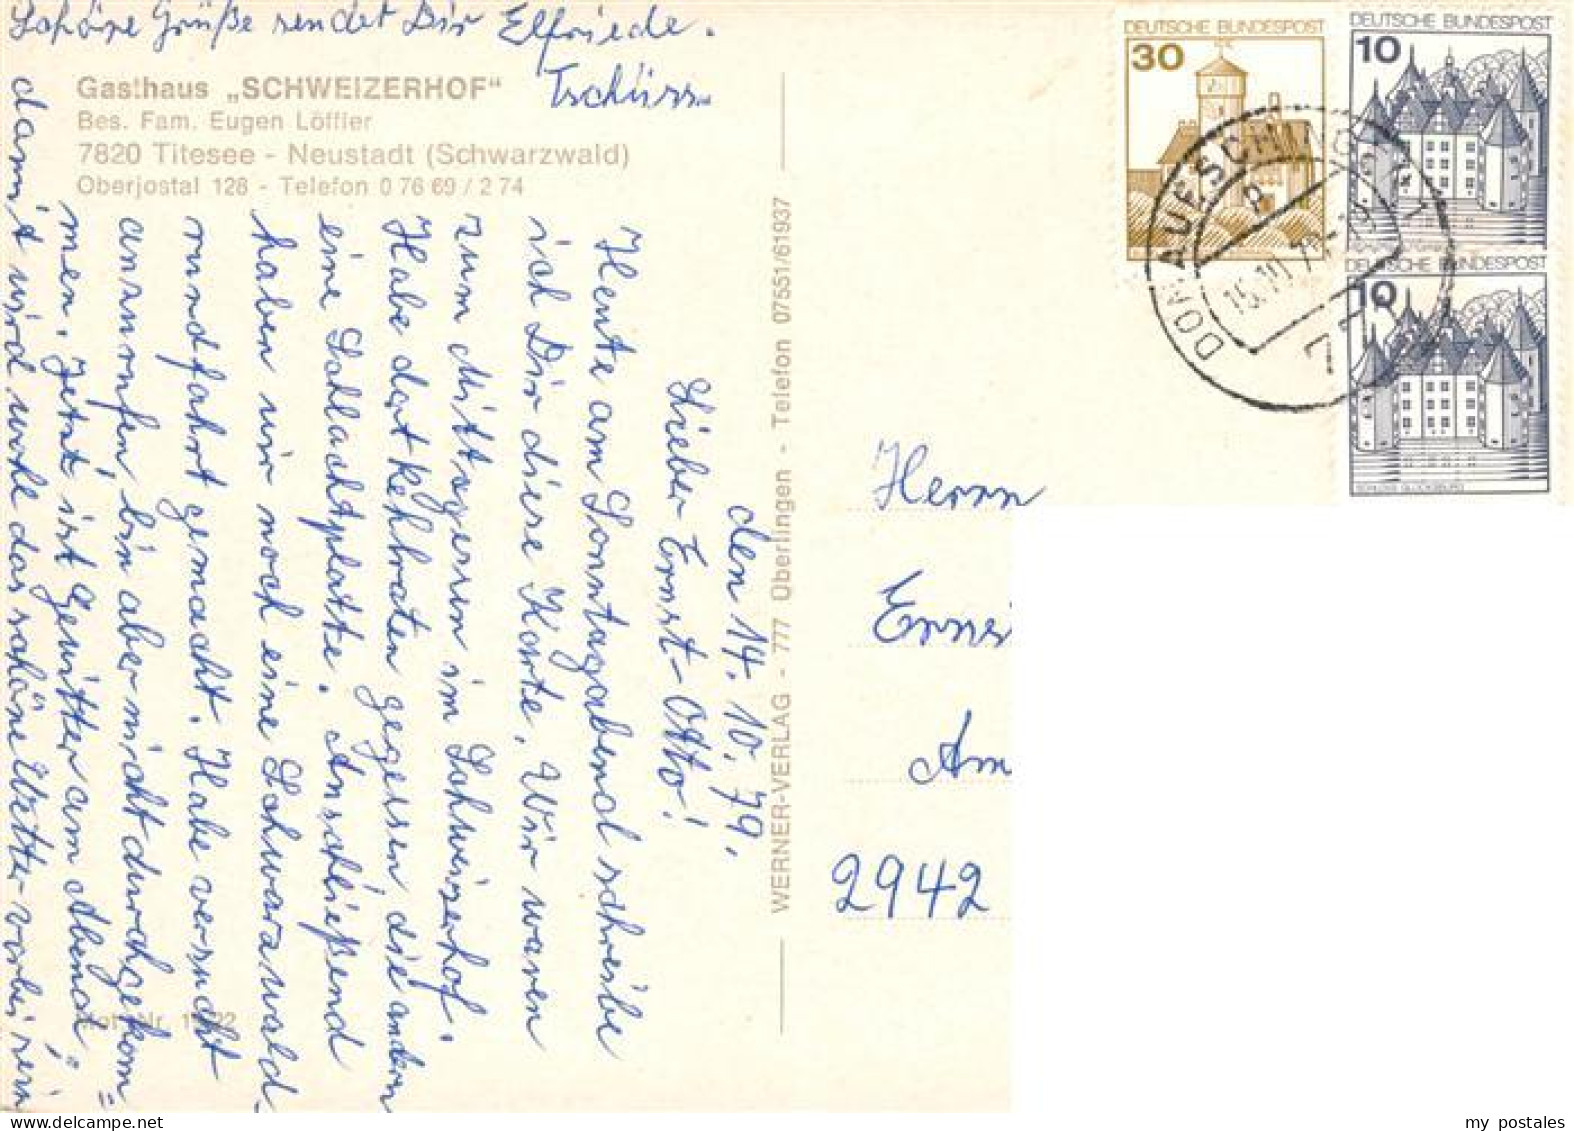 Gasthaus „SCHWEIZERHOF"
Bes. Fam. Eugen Löffler
7820 Titesee - Neustadt (Schwarzwald)
Oberjostal 128 - Telefon 0 76 69 / 2 74
den 14. 10. 79.
Lieber Ernst-Otto!
Heute am Sonntagabend schreibe
ich Dir diese Karte. Wir waren
zum Mittagessen im Schweizerhof.
Habe dort Kehbraten gegessen, die andern
eine Schlachtplatte. Anschließend
haben wir noch eine Schwarzwald
rundfahrt gemacht. Habe versucht
anzurufen, bin aber nicht durchgekom=
men. Jetzt ist Gewitter am Abend,
damit wird wohl das schöne Wetter vorbei sein
Schöne Grüße sendet Dir Elfriede.
Tschüss
WERNER-VERLAG - 777 Überlingen - Telefon 07551/61937
DEUTSCHE BUNDESPOST
30
DEUTSCHE BUNDESPOST
10
DEUTSCHE BUNDESPOST
10
SCHLOSS GLÜCKSBURG
DONAUESCHINGEN
15.10.79-19
Herrn
Am
2942
my postales